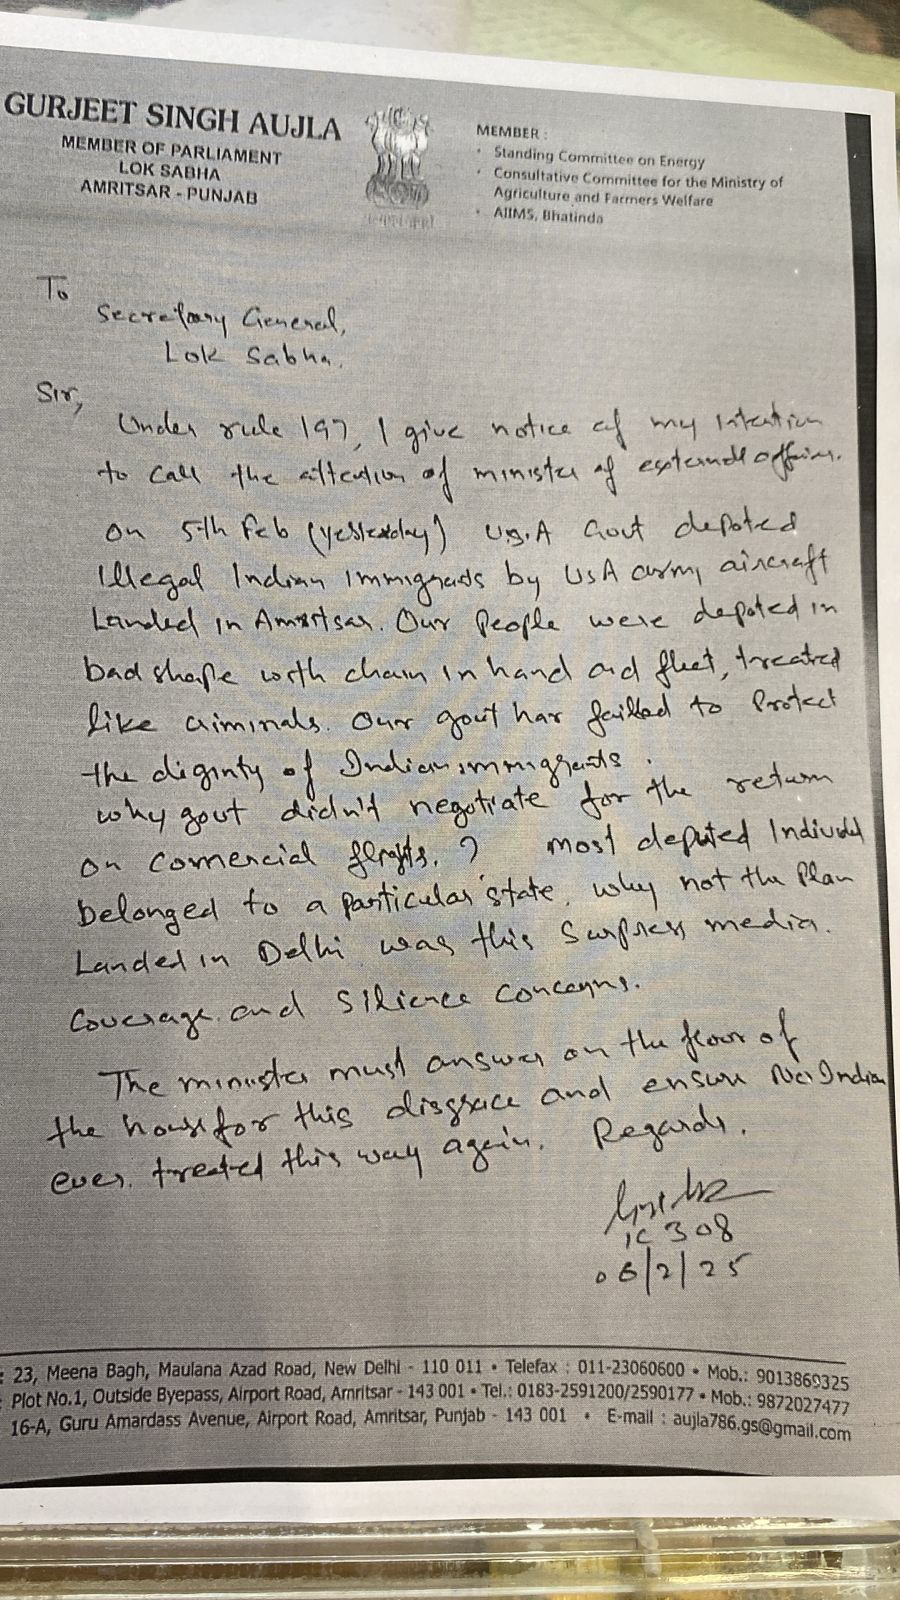 GURJEET SINGH AUJLA
MEMBER OF PARLIAMENT
LOK SABHA
AMRITSAR - PUNJAB
MEMBER :
• Standing Committee on Energy
• Consultative Committee for the Ministry of
Agriculture and Farmers Welfare
• AIIMS, Bhatinda
To
Secretary General,
Lok Sabha.
Sir,
Under rule 197, I give notice of my intention
to call the attention of minister of external affairs.
on 5th Feb (yesterday) U.S.A Govt depoted
Illegal Indian Immigrads by USA army aircraft
Landed in Amritsar. Our People were depoted in
bad shape with chain in hand and fleet, treated
like criminals. Our govt has failled to Protect
the diginty of Indian immigrants.
why govt didn't negotiate for the return
on comercial flights. ? most deputed Individual
belonged to a particular state. why not the Plan
Landed in Delhi was this Surpress media.
Coverage. and Silience concerns.
The minister must answer on the floor of
the house for this disgrace and ensure No Indian
ever. treated this way again. Regards.
IC 308
06/2/25
: 23, Meena Bagh, Maulana Azad Road, New Delhi - 110 011 • Telefax : 011-23060600 • Mob.: 9013869325
: Plot No.1, Outside Byepass, Airport Road, Amritsar - 143 001 • Tel.: 0183-2591200/2590177 • Mob.: 9872027477
16-A, Guru Amardass Avenue, Airport Road, Amritsar, Punjab - 143 001 • E-mail : aujla786.gs@gmail.com